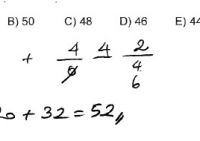 B) 50 C) 48 D) 46 E) 44
+ 4 4 2
4
6
20 + 32 = 52,,